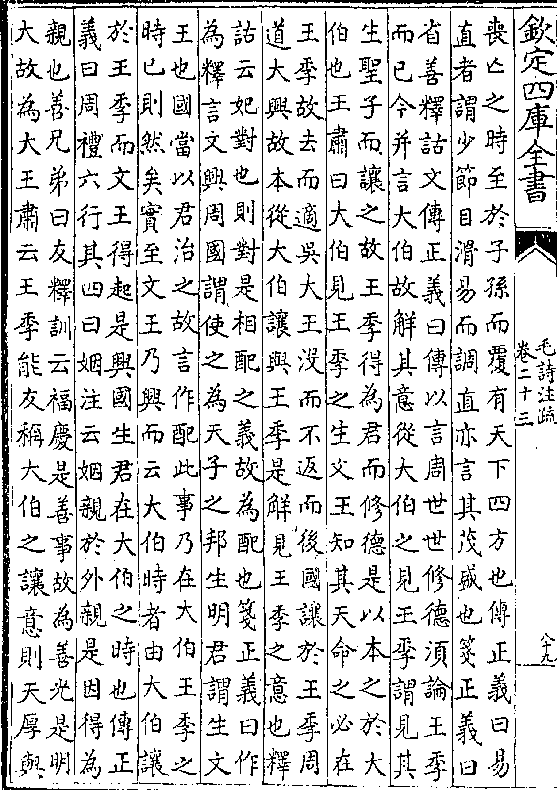 欽定四庫全書
毛詩注疏
卷二十三
八十九
喪亡之時至於子孫而覆有天下四方也傳正義曰易
直者謂少節目滑易而調直亦言其茂盛也箋正義曰
省善釋詁文傳正義曰傳以言周世世修德須論王季
而已今并言大伯故解其意從大伯之見王季謂見其
生聖子而讓之故王季得為君而修德是以本之於大
伯也王肅曰大伯見王季之生文王知其天命之必在
王季故去而適吳大王没而不返而後國讓於王季周
道大興故本從大伯讓與王季是解見王季之意也釋
詁云妃對也則對是相配之義故為配也箋正義曰作
為釋言文興周國謂使之為天子之邦生明君謂生文
王也國當以君治之故言作配此事乃在大伯王季之
時已則然矣實至文王乃興而云大伯時者由大伯讓
於王季而文王得起是興國生君在大伯之時也傳正
義曰周禮六行其四曰姻注云姻親於外親是因得為
親也善兄弟曰友釋訓云福慶是善事故為善光是明
大故為大王肅云王季能友稱大伯之讓意則天厚與